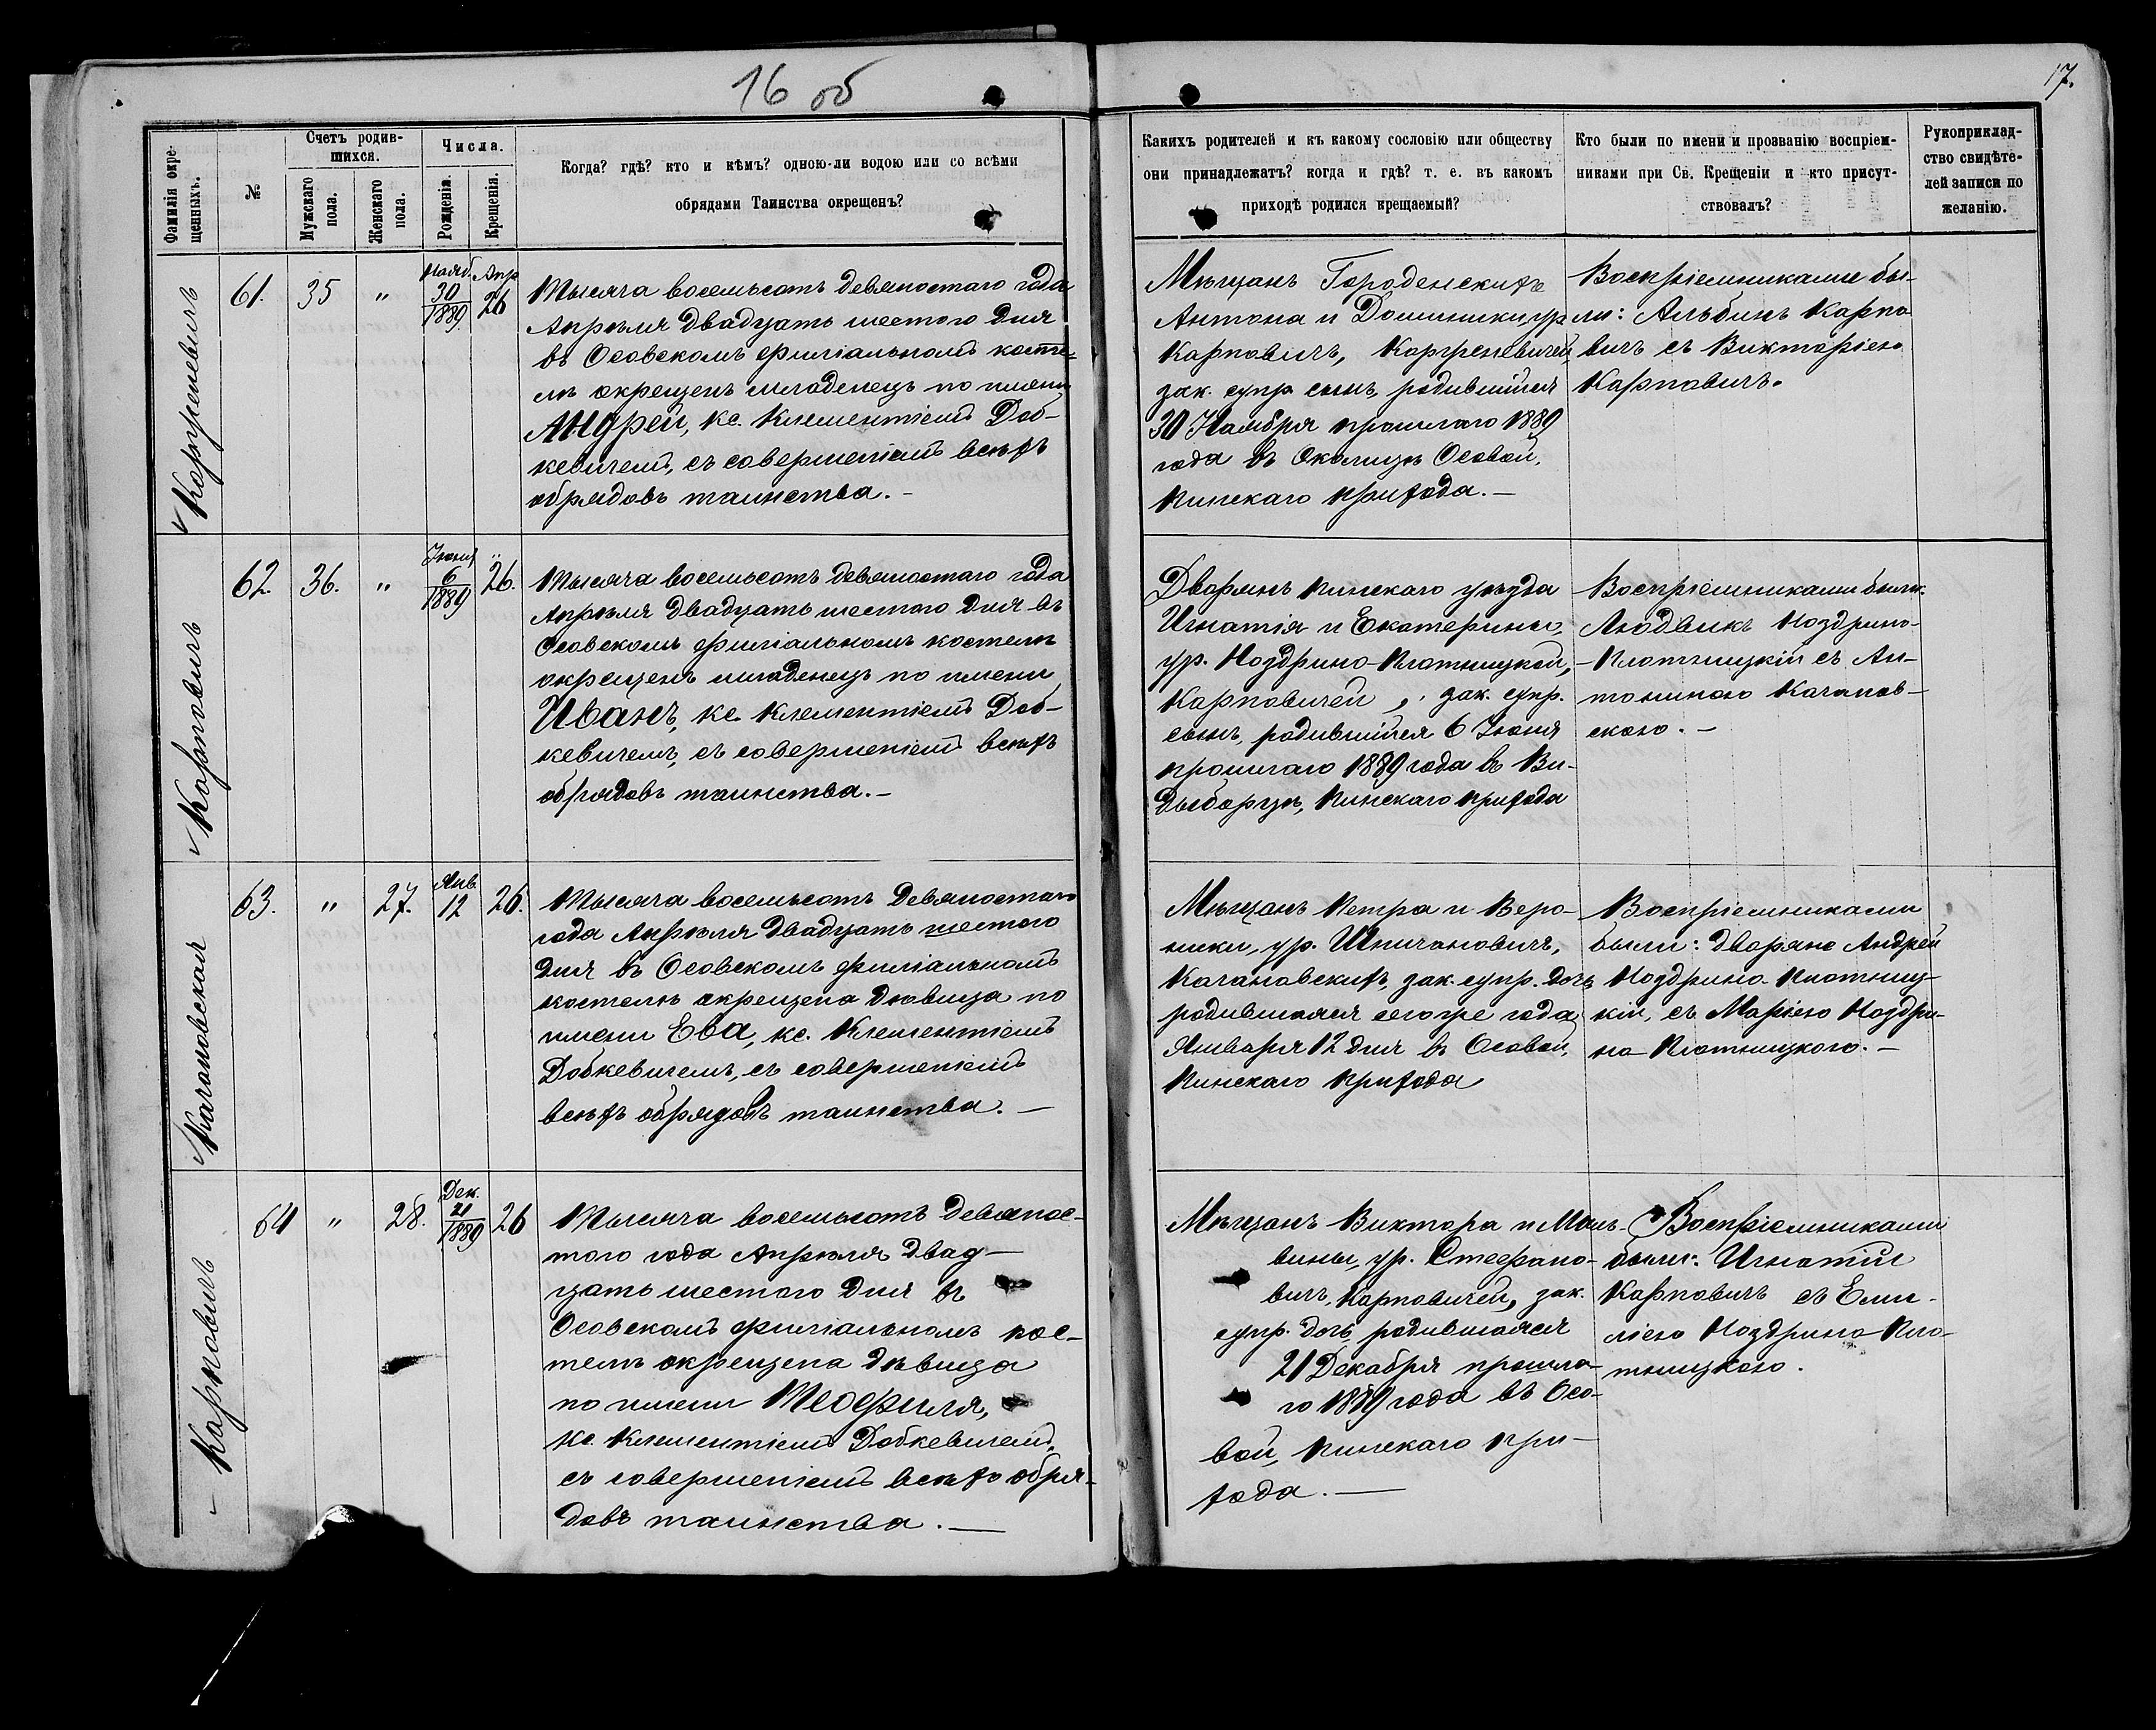 16 об
17.
Фамилія окре-
щенныхъ.
№
Счетъ родив-
шихся.
Мужскаго
пола.
Женскаго
пола.
Числа.
Рожденія.
Крещенія.
Когда? гдѣ? кто и кѣмъ? одною-ли водою или со всѣми
обрядами Таинства окрещенъ?
Какихъ родителей и къ какому сословію или обществу
они принадлежатъ? когда и гдѣ? т. е. въ какомъ
приходѣ родился крещаемый?
Кто были по имени и прозванію воспріем-
никами при Св. Крещеніи и кто присут-
ствовалъ?
Рукоприклад-
ство свидѣте-
лей записи по
желанію.
61.
35
"
Нояб.
30
1889
Апр
26
Тысяча восемьсотъ девяностаго года
Апрѣля двадцать шестого дня
въ Осовскомъ филіальномъ косте-
лѣ окрещенъ младенецъ по имени
Андрей, кс. Клементіемъ Доб-
кевичемъ, съ совершеніемъ всѣхъ
обрядовъ таинства. -
Мѣщанъ Городенскихъ
Антона и Доминики, ур
Карповичъ,
зак. супр. сынъ, родившійся
30 Ноября прошлаго 1889
года въ Околицѣ Осовой,
Пинскаго прихода. -
Воспріемниками бы-
ли: Альбинъ Карпо
вичъ съ Викторіею
Карповичъ.
62.
36.
"
Іюня
6
1889
"
26.
Карповичъ
Тысяча восемьсотъ девяностаго года
Апрѣля двадцать шестого дня въ
Осовскомъ филіальномъ костелѣ
окрещенъ младенецъ по имени
Иванъ, кс. Клементіемъ Доб-
кевичемъ, съ совершеніемъ всѣхъ
обрядовъ таинства. -
Дворянъ Пинскаго уѣзда
Игнатія и Екатерины,
ур. Ноздрино-Плотницкой,
Карповичей, зак. супр.
сынъ, родившійся 6 Іюня
прошлаго 1889 года въ Ви-
дыборцѣ, Пинскаго прихода
Воспріемниками были:
Людвикъ Ноздрино-
-Плотницкій съ Ан-
тониною Качанов-
скою. -
63.
"
27.
Янв.
12
26.
Качановская
Тысяча восемьсотъ девяностаго
года Апрѣля двадцать шестого
дня въ Осовскомъ филіальномъ
костелѣ окрещена дѣвица по
имени Ева, кс. Клементіемъ
Добкевичемъ, съ совершеніемъ
всѣхъ обрядовъ таинства. -
Мѣщанъ Петра и Веро-
ники, ур. Шпичановичъ,
Качановскихъ, зак. супр. дочь
родившаяся сего же года
Января 12 дня въ Осовой,
Пинскаго прихода
Воспріемниками
были: дворяне Андрей
Ноздрино-Плотниц-
кій, съ Маріею Ноздри-
но-Плотницкою. -
64
"
28.
Дек.
21
1889
26
Карповичъ
Тысяча восемьсотъ девянос-
таго года Апрѣля двад-
цать шестого дня въ
Осовскомъ филіальномъ кос-
телѣ окрещена дѣвица
по имени Теофиля,
кс. Клементіемъ Добкевичемъ,
съ совершеніемъ всѣхъ обря-
довъ таинства. -
Мѣщанъ Виктора и Маль-
вины, ур. Стефано-
вичъ, Карповичей, зак.
супр. дочь, родившаяся
21 Декабря прошла-
го 1889 года въ Осо-
вой, Пинскаго при-
хода. -
Воспріемниками
были: Игнатій
Карповичъ съ Еми-
ліею Ноздрино-Пло-
тницкою.